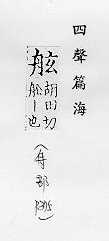 四聲篇海
舷胡田切
船丨也
(舟部